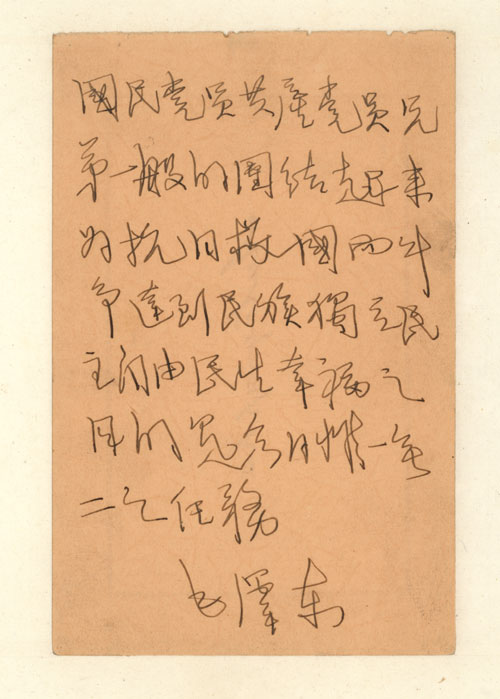 國民党员共產党员兄
弟一般的團结起来
为抗日救國而斗
争達到民族獨立民
主自由民生幸福之
目的是今日惟一无
二之任務
毛澤东